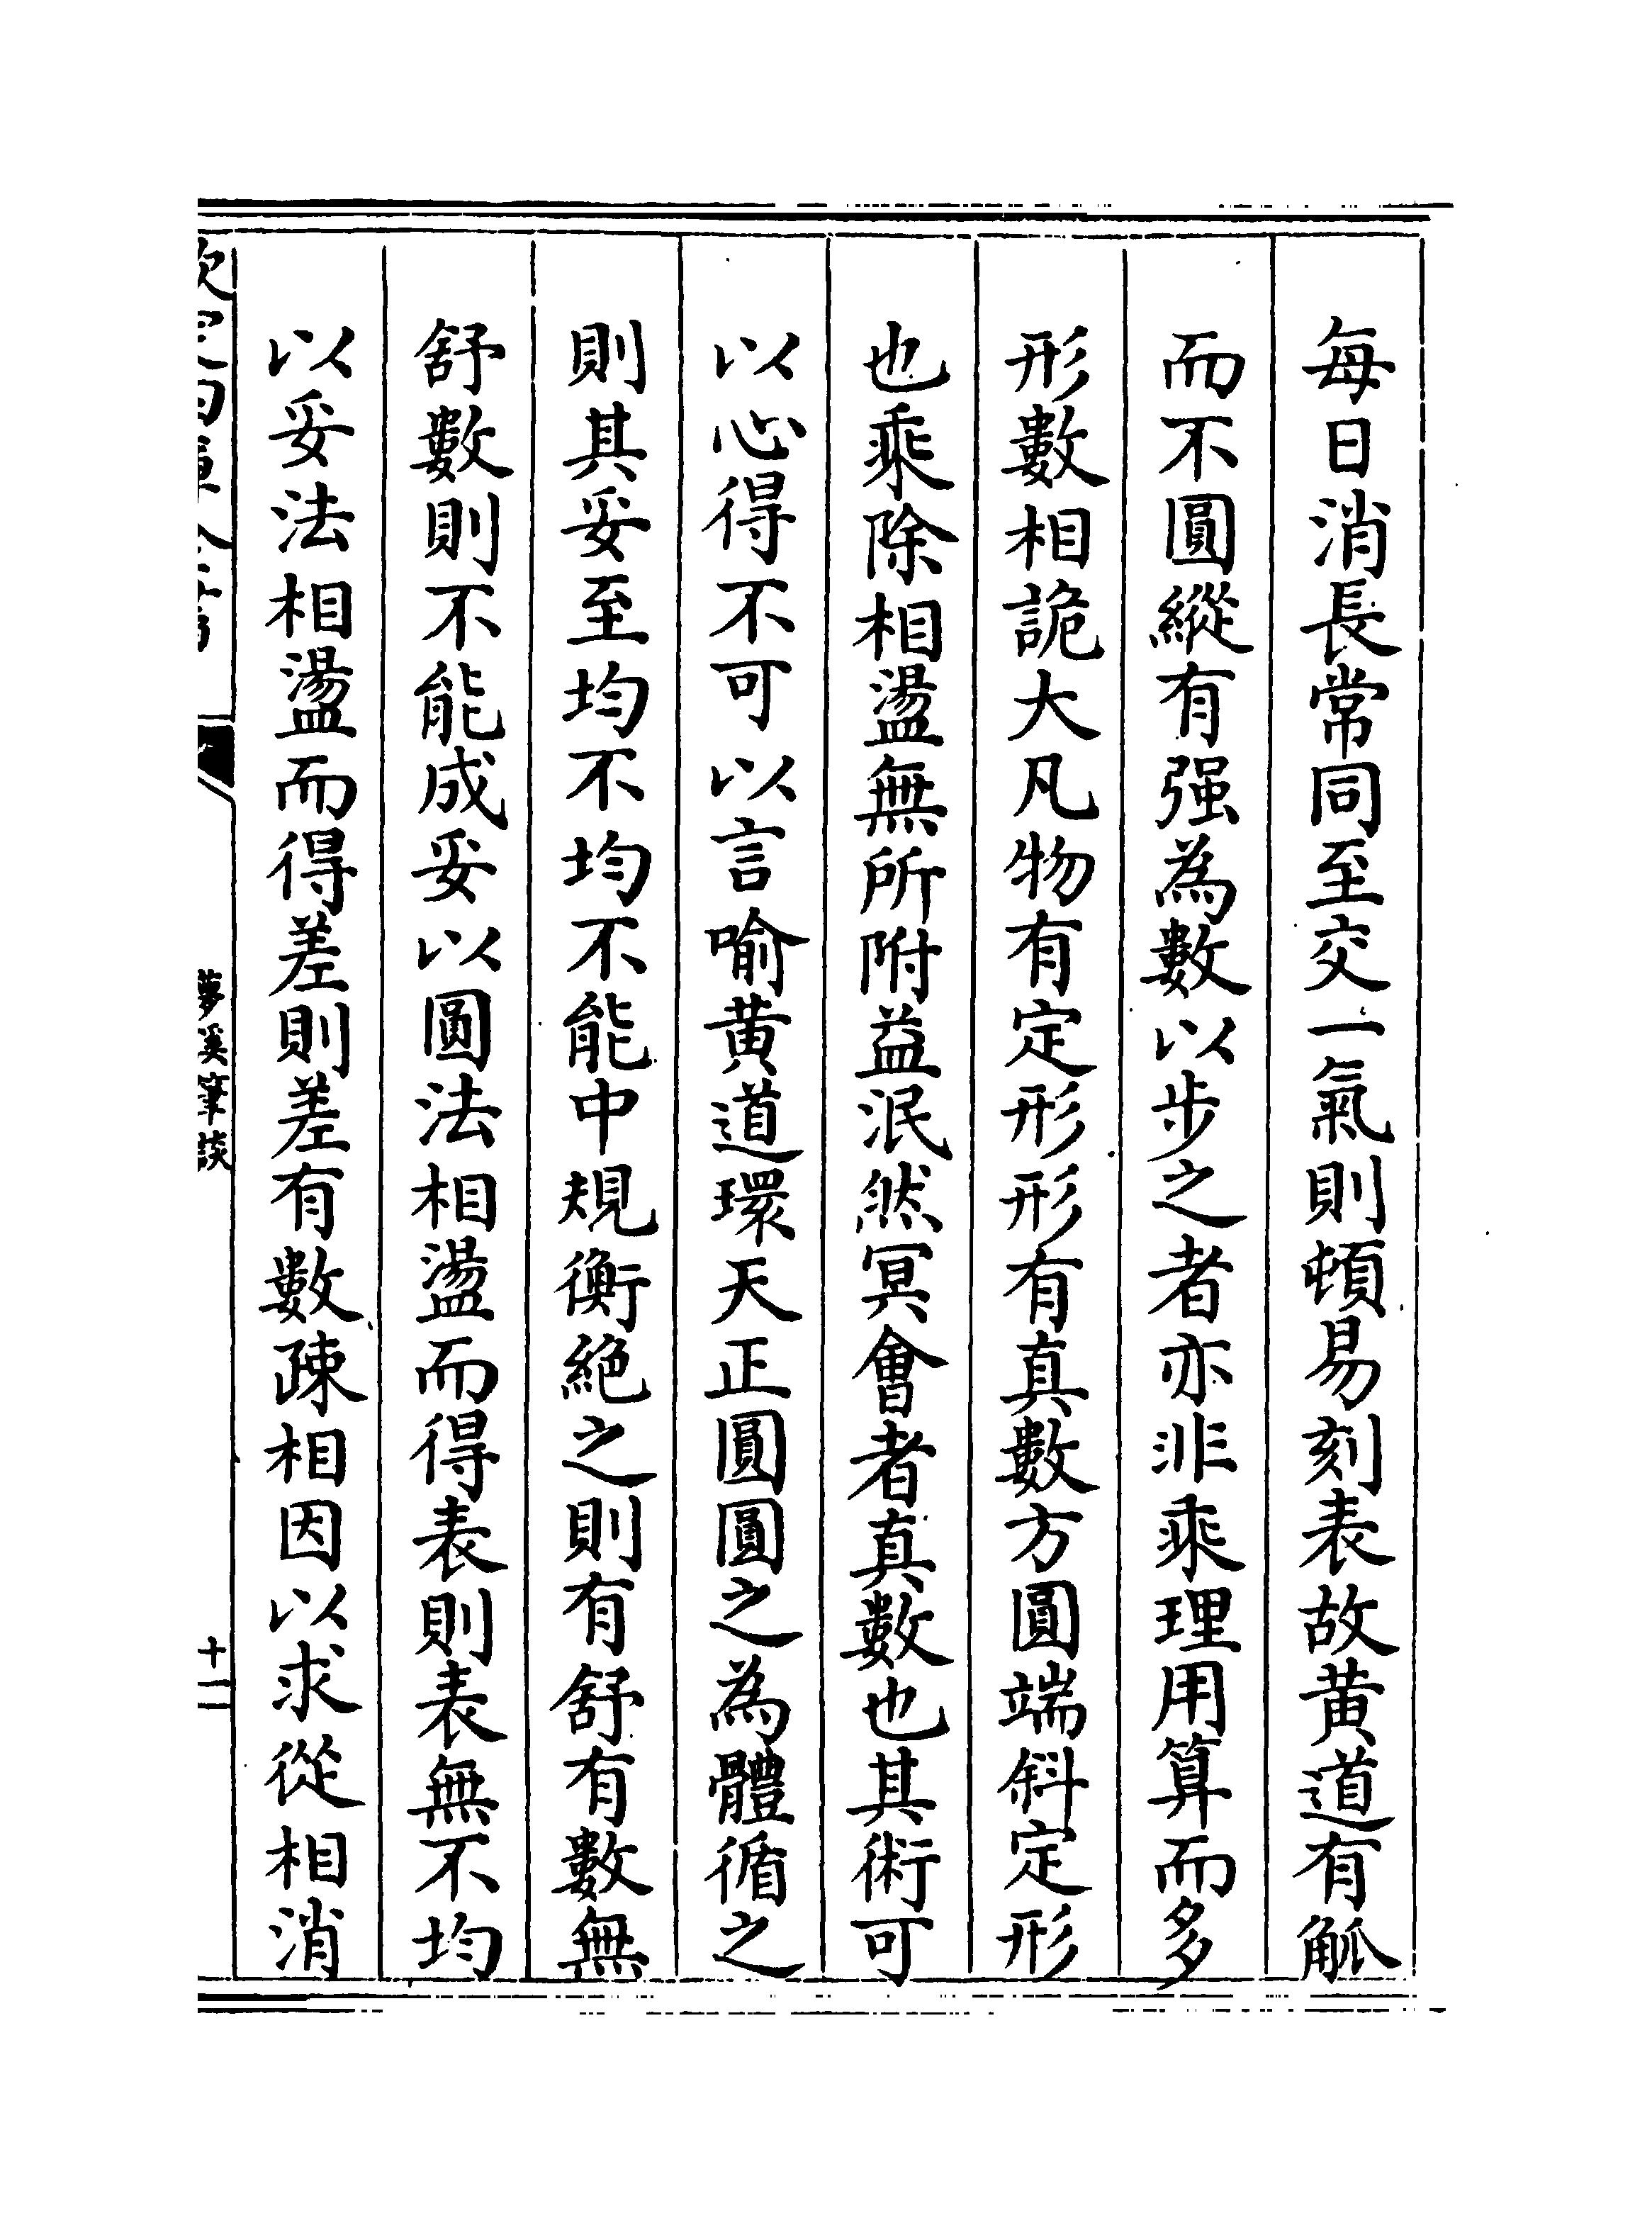 每日消長常同至交一氣則頓易刻表故黄道有觚
而不圓縱有强為數以步之者亦非乘理用算而多
形數相詭大凡物有定形形有真數方圓端斜定形
也乘除相盪無所附益泯然冥會者真數也其術可
以心得不可以言喻黄道環天正圓圓之為體循之
則其妥至均不均不能中規衡絶之則有舒有數無
舒數則不能成妥以圓法相盪而得表則表無不均
以妥法相盪而得差則差有數疎相因以求從相消
欽定四庫全書
夢溪筆談
十二